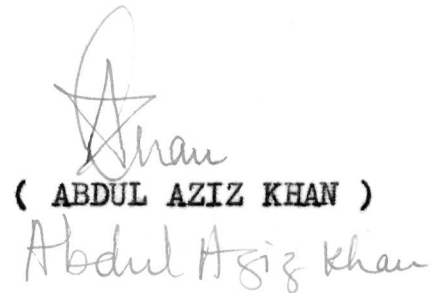 Khan
( ABDUL AZIZ KHAN )
Abdul Aziz Khan